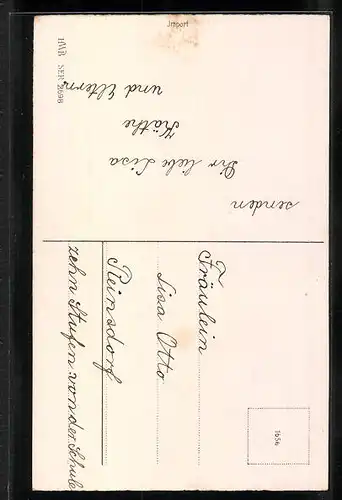 senden
Dir liebe Lisa
Käthe
und Eltern
HWB SER 2698
Import
Fräulein
Lisa Otto
Reinsdorf
zehn Stufen von der Schule
1656